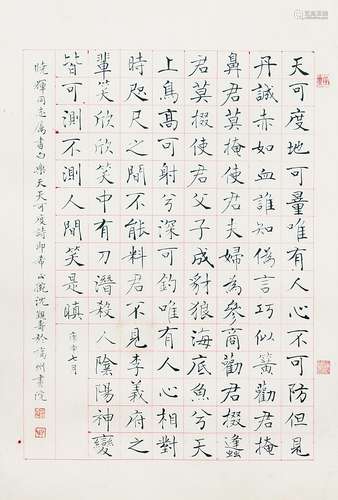 天可度地可量唯有人心不可防但見
丹誠赤如血誰知偽言巧似簧勸君掩
鼻君莫掩使君夫婦為參商勸君掇蠭
君莫掇使君父子成豺狼海底魚兮天
上鳥高可射兮深可釣唯有人心相對
時咫尺之間不能料君不見李義府之
輩笑欣欣笑中有刀潛殺人陰陽神變
皆可測不測人間笑是瞋
七月
輝同志屬書白樂天天可度詩即希 沈覲壽於福州書院